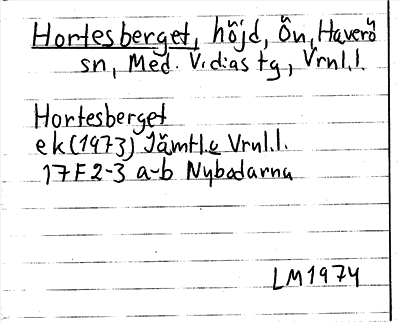 Hortesberget, höjd, Ön, Haverö
sn, Med. Vidias tg, Vrnl.l.
Hortesberget
ek (1973) Jämtl.e Vrnl.l.
17F 2-3 a-b Nybodarna
LM 1974